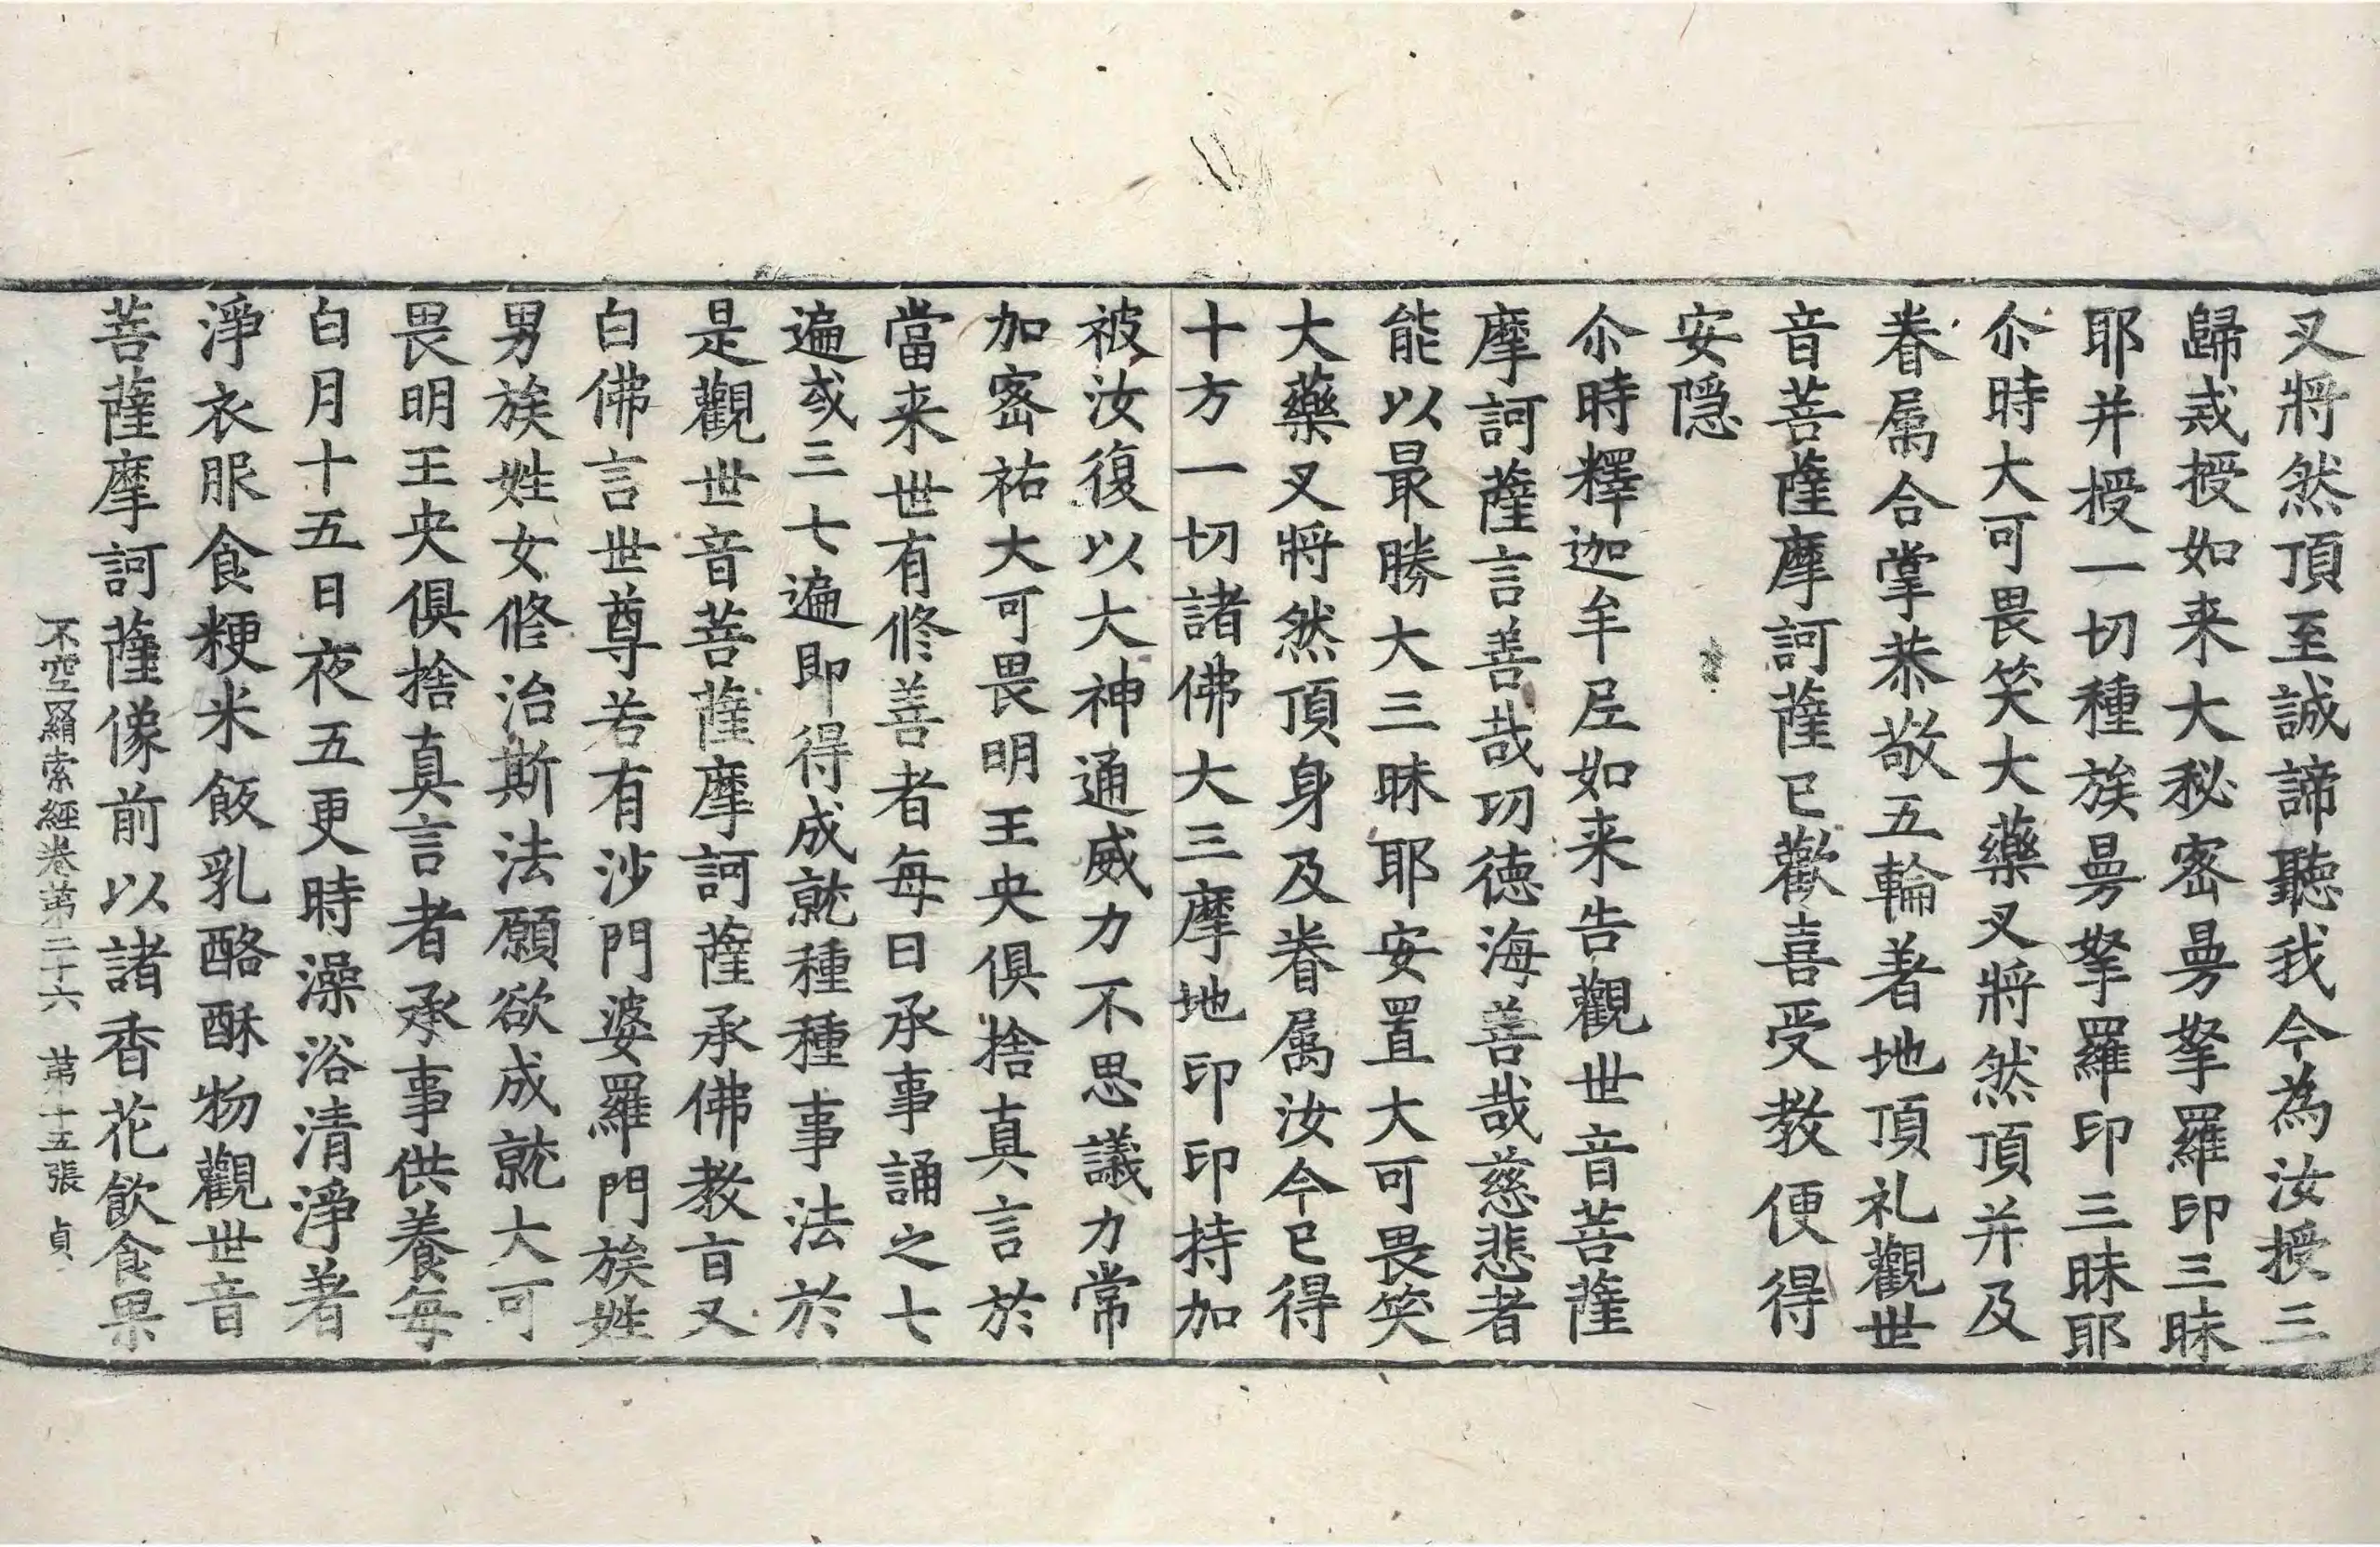 叉將然頂至誠諦聽我今為汝授三
歸戒授如来大秘密曼拏羅印三昧
耶并授一切種族曼拏羅印三昧耶
尒時大可畏笑大藥叉將然頂并及
眷属合掌恭敬五輪著地頂礼觀世
音菩薩摩訶薩已歡喜受教便得
安隱
尒時釋迦牟尼如来告觀世音菩薩
摩訶薩言善哉功德海善哉慈悲者
能以最勝大三昧耶安置大可畏笑
大藥叉將然頂身及眷属汝今已得
十方一切諸佛大三摩地印印持加
被汝復以大神通威力不思議力常
加密祐大可畏明王央俱捨真言於
當来世有修善者每日承事誦之七
遍或三七遍即得成就種種事法於
是觀世音菩薩摩訶薩承佛教盲又
白佛言世尊若有沙門婆羅門族姓
男族姓女修治斯法願欲成就大可
畏明王央俱捨真言者承事供養每
白月十五日夜五更時澡浴清淨著
淨衣服食粳米飯乳酪酥物觀世音
菩薩摩訶薩像前以諸香花飲食果
不空羂索經卷第二十六 第十五張 貞